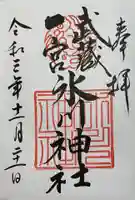 奉拝
武蔵一宮
氷川神社
令和三年十一月二十一日